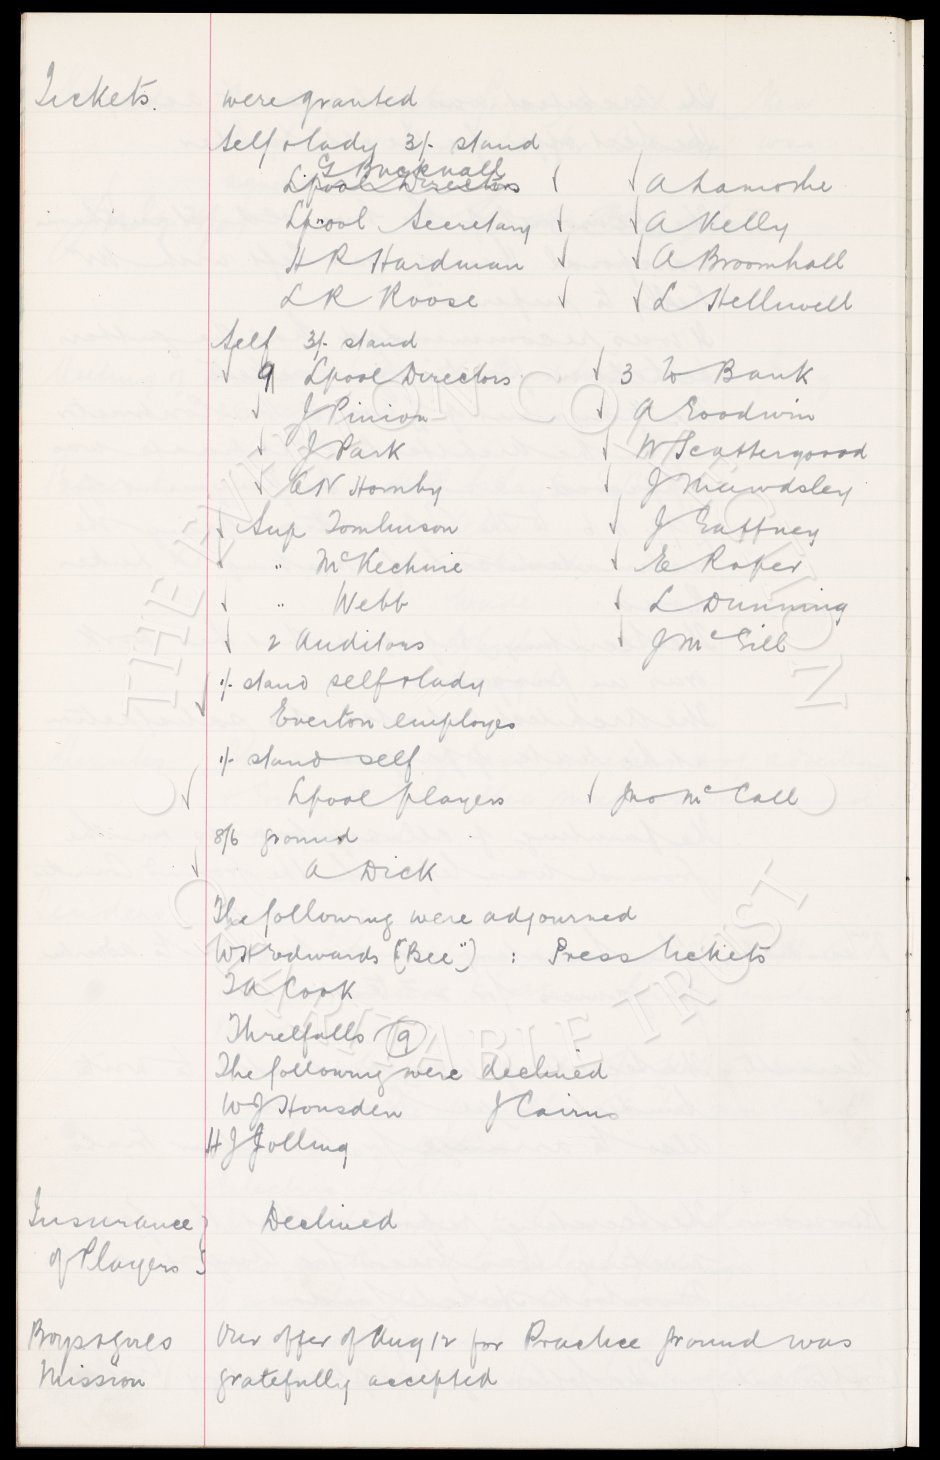 Tickets. were granted
Self & lady 3/- stand
G Bucknall
Lpool Directors A Lamothe
Lpool Secretary A Kelly
H R Hardman A Broomhall
L R Roose L Helliwell
Self 3/- stand
9 Lpool Directors 3 to Bank
J Pinion A Goodwin
J Park W Scattergoood
A N Hornby J Mawdsley
Sup Tomlinson J Gaffney
" McKechnie E Roper
" Webb L Dunning
2 Auditors J McGill
1/- stand self & lady
Everton employes
1/- stand self
Lpool players Jno McCall
8/6 ground
A Dick
The following were adjourned
W H Edwards ("Bee") : Press tickets
T A Cook
Threlfalls 9
The following were declined
W J Housden J Cairns
H J Jolling
Insurance Declined
of Players
Boys & Girls Our offer of Aug 12 for Practice ground was
Mission gratefully accepted
THE EVERTON COLLECTION
CHARITABLE TRUST